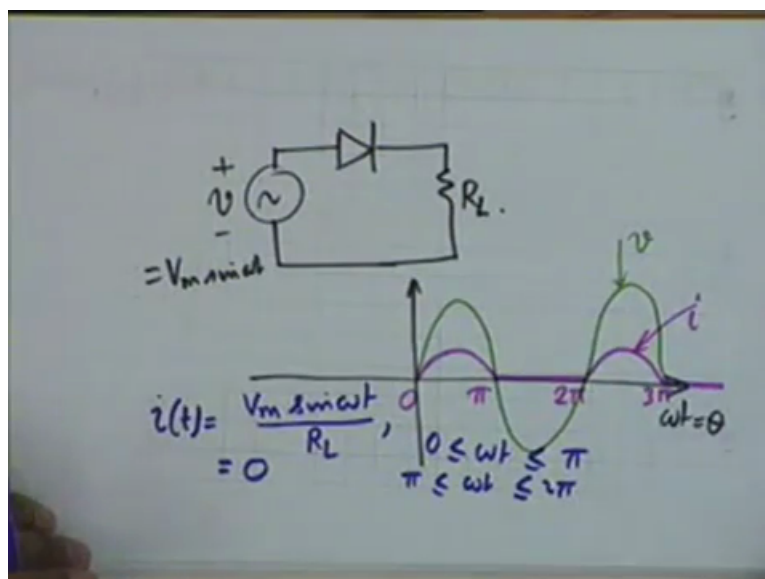 +
v
-
= Vm sin ωt
R_L.
v
i
0 π 2π 3π
ωt = θ
i(t) = Vm sin ωt / R_L , 0 ≤ ωt ≤ π
= 0 π ≤ ωt ≤ 2π